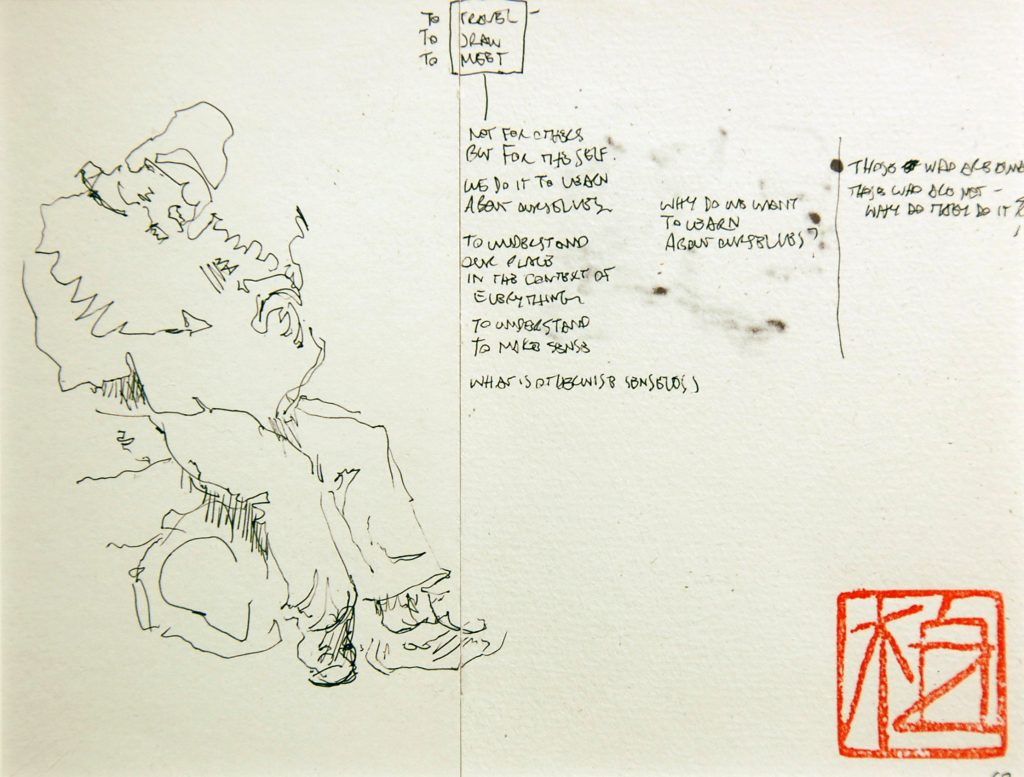 TO TRAVEL -
TO DRAW
TO MEET
NOT FOR OTHERS
BUT FOR THE SELF.
WE DO IT TO LEARN
ABOUT OURSELVES
TO UNDERSTAND
OUR PLACE
IN THE CONTEXT OF
EVERYTHING
TO UNDERSTAND
TO MAKE SENSE
WHAT IS OTHERWISE SENSELESS
WHY DO WE WANT
TO LEARN
ABOUT OURSELVES?
THOSE WHO ARE
THOSE WHO ARE NOT -
WHY DO THEY DO IT?